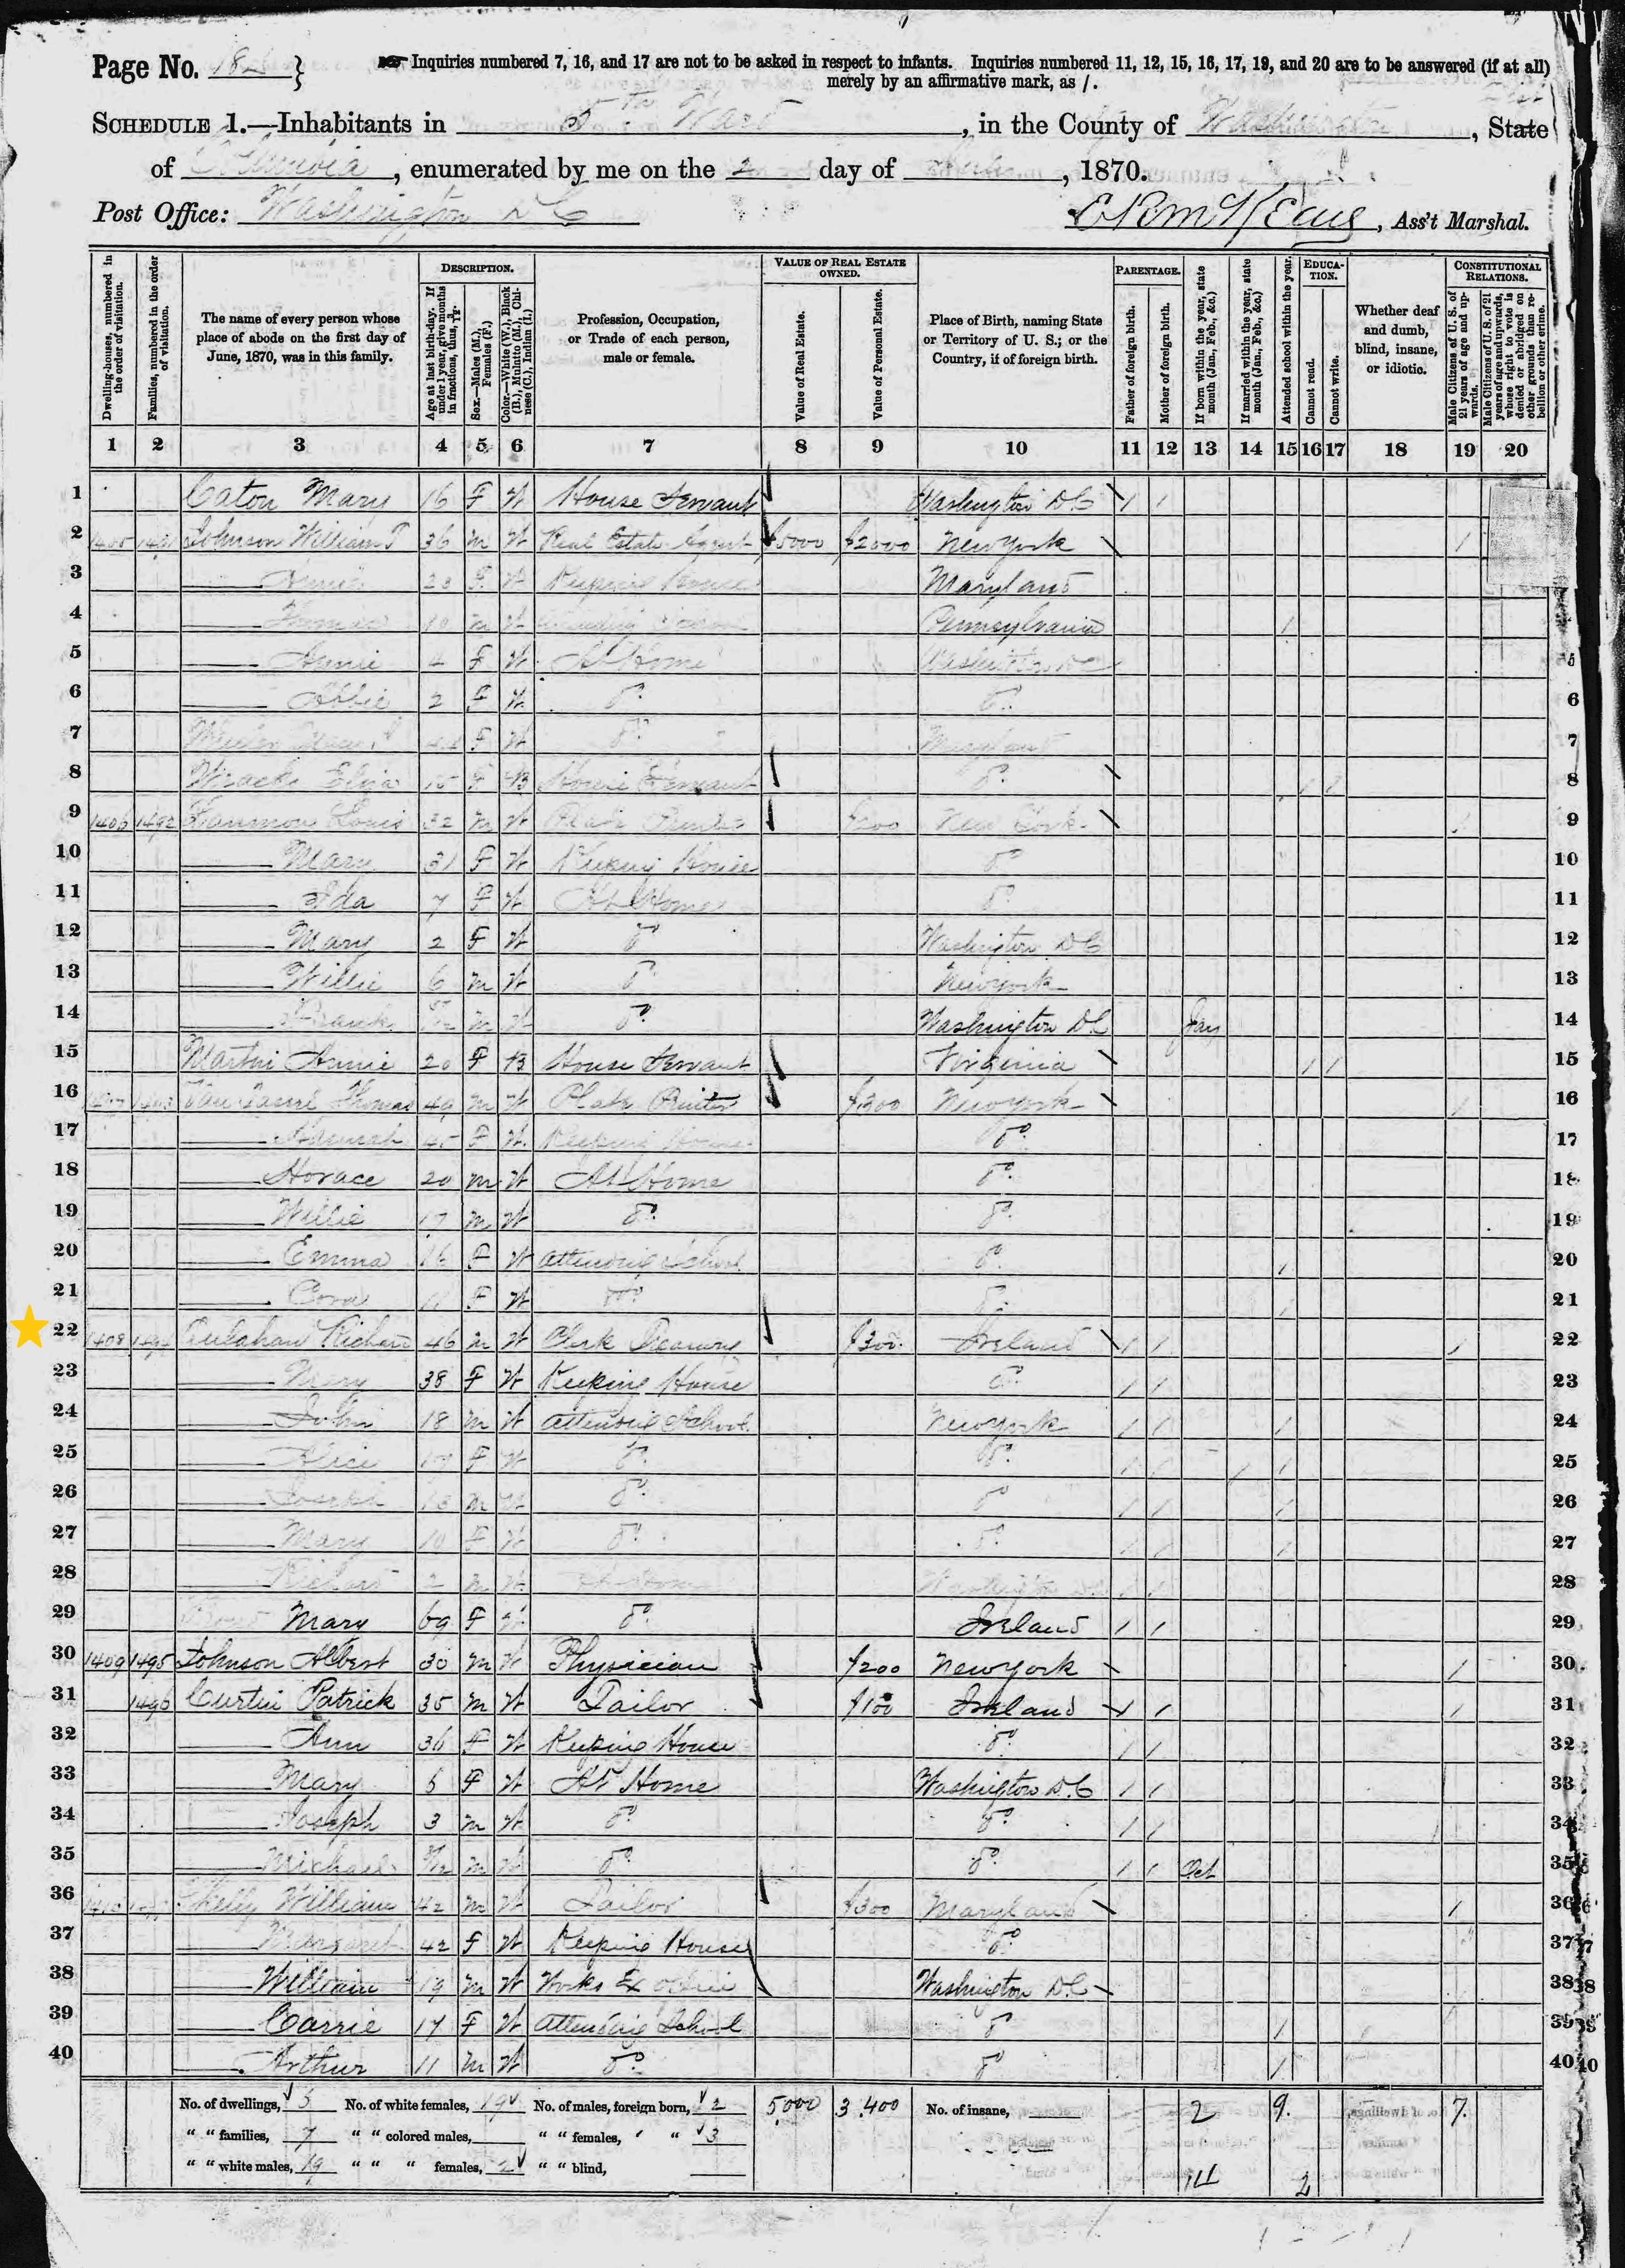 Page No. 182}
☞ Inquiries numbered 7, 16, and 17 are not to be asked in respect to infants. Inquiries numbered 11, 12, 15, 16, 17, 19, and 20 are to be answered (if at all)
merely by an affirmative mark, as /.
SCHEDULE 1.—Inhabitants in 5th Ward, in the County of Washington, State
of Columbia, enumerated by me on the 2 day of, 1870.
Post Office: Washington DC
, Ass't Marshal.
Dwelling-houses, numbered in the order of visitation.
Families, numbered in the order of visitation.
The name of every person whose place of abode on the first day of June, 1870, was in this family.
DESCRIPTION.
Age at last birth-day. If under 1 year, give months in fractions, thus, 3/12.
Sex.—Males (M.), Females (F.)
Color.—White (W.), Black (B.), Mulatto (M.), Chinese (C.), Indian (I.)
Profession, Occupation, or Trade of each person, male or female.
VALUE OF REAL ESTATE OWNED.
Value of Real Estate.
Value of Personal Estate.
Place of Birth, naming State or Territory of U. S.; or the Country, if of foreign birth.
PARENTAGE.
Father of foreign birth.
Mother of foreign birth.
If born within the year, state month (Jan., Feb., &c.)
If married within the year, state month (Jan., Feb., &c.)
Attended school within the year.
EDUCATION.
Cannot read.
Cannot write.
Whether deaf and dumb, blind, insane, or idiotic.
CONSTITUTIONAL RELATIONS.
Male Citizens of U. S. of 21 years of age and upwards.
Male Citizens of U. S. of 21 years of age and upwards, whose right to vote is denied or abridged on other grounds than rebellion or other crime.
1 2 3 4 5 6 7 8 9 10 11 12 13 14 15 16 17 18 19 20
1 Caton Mary 16 F W House Servant Washington DC / /
2 Johnson William 36 m W Real Estate Agent $5000 $2000 New York /
3 Annie F W Keeping House Maryland
4 Thomas 10 m W Pennsylvania /
5 Annie 4 F W At Home Washington DC 5
6 Abbie 2 F W do do 6
7 F W do Maryland 7
8 Eliza 15 F B House Servant do / / 8
9 1406 1492 Louis 32 m W Plate Printer New York / 9
10 Mary 31 F W Keeping House do 10
11 Ida 7 F W At Home do 11
12 Mary 2 F W do Washington DC 12
13 Willie 6 m W do New York 13
14 Frank m W do Washington DC Jan 14
15 Martin Annie 20 F B House Servant Virginia / / 15
16 Thomas 49 m W Plate Printer $300 New York / 16
17 Hannah 45 F W Keeping House do 17
18 Horace 20 m W At Home do 18
19 Willie 17 m W do do 19
20 Emma 16 F W attending School do / 20
21 Cora 11 F W do do / 21
22 1408 1494 Culahan Richard 46 m W Clerk Treasury $300 Ireland / / / 22
23 Mary 38 F W Keeping House do / / 23
24 John 18 m W attending School New York / / / 24
25 Alice 17 F W do do / / / / 25
26 Joseph 13 m W do do / / / 26
27 Mary 10 F W do do / / / 27
28 Richard 2 m W At Home Washington DC / / 28
29 Mary 69 F W do Ireland / / 29
30 1409 1495 Johnson Albert 30 m W Physician $200 New York / 30
31 1496 Curtin Patrick 35 m W Tailor $100 Ireland / / / 31
32 Ann 36 F W Keeping House do / / 32
33 Mary 5 F W At Home Washington D.C / / 33
34 Joseph 3 m W do do / / 34
35 Michael m W do do / / Oct 35
36 William 42 m W Tailor $300 Maryland / 36
37 Margaret 42 F W Keeping House do 37
38 William 19 m W Works Washington D.C 38
39 Carrie 17 F W attending School do / 39
40 Arthur 11 m W do do / 40
No. of dwellings, 5 No. of white females, 19 No. of males, foreign born, 2 5,000 3,400 No. of insane, 2 9. 7.
" " families, 7 " " colored males, " " females, " " 3
" " white males, 19 " " " females, 2 " " blind, 2